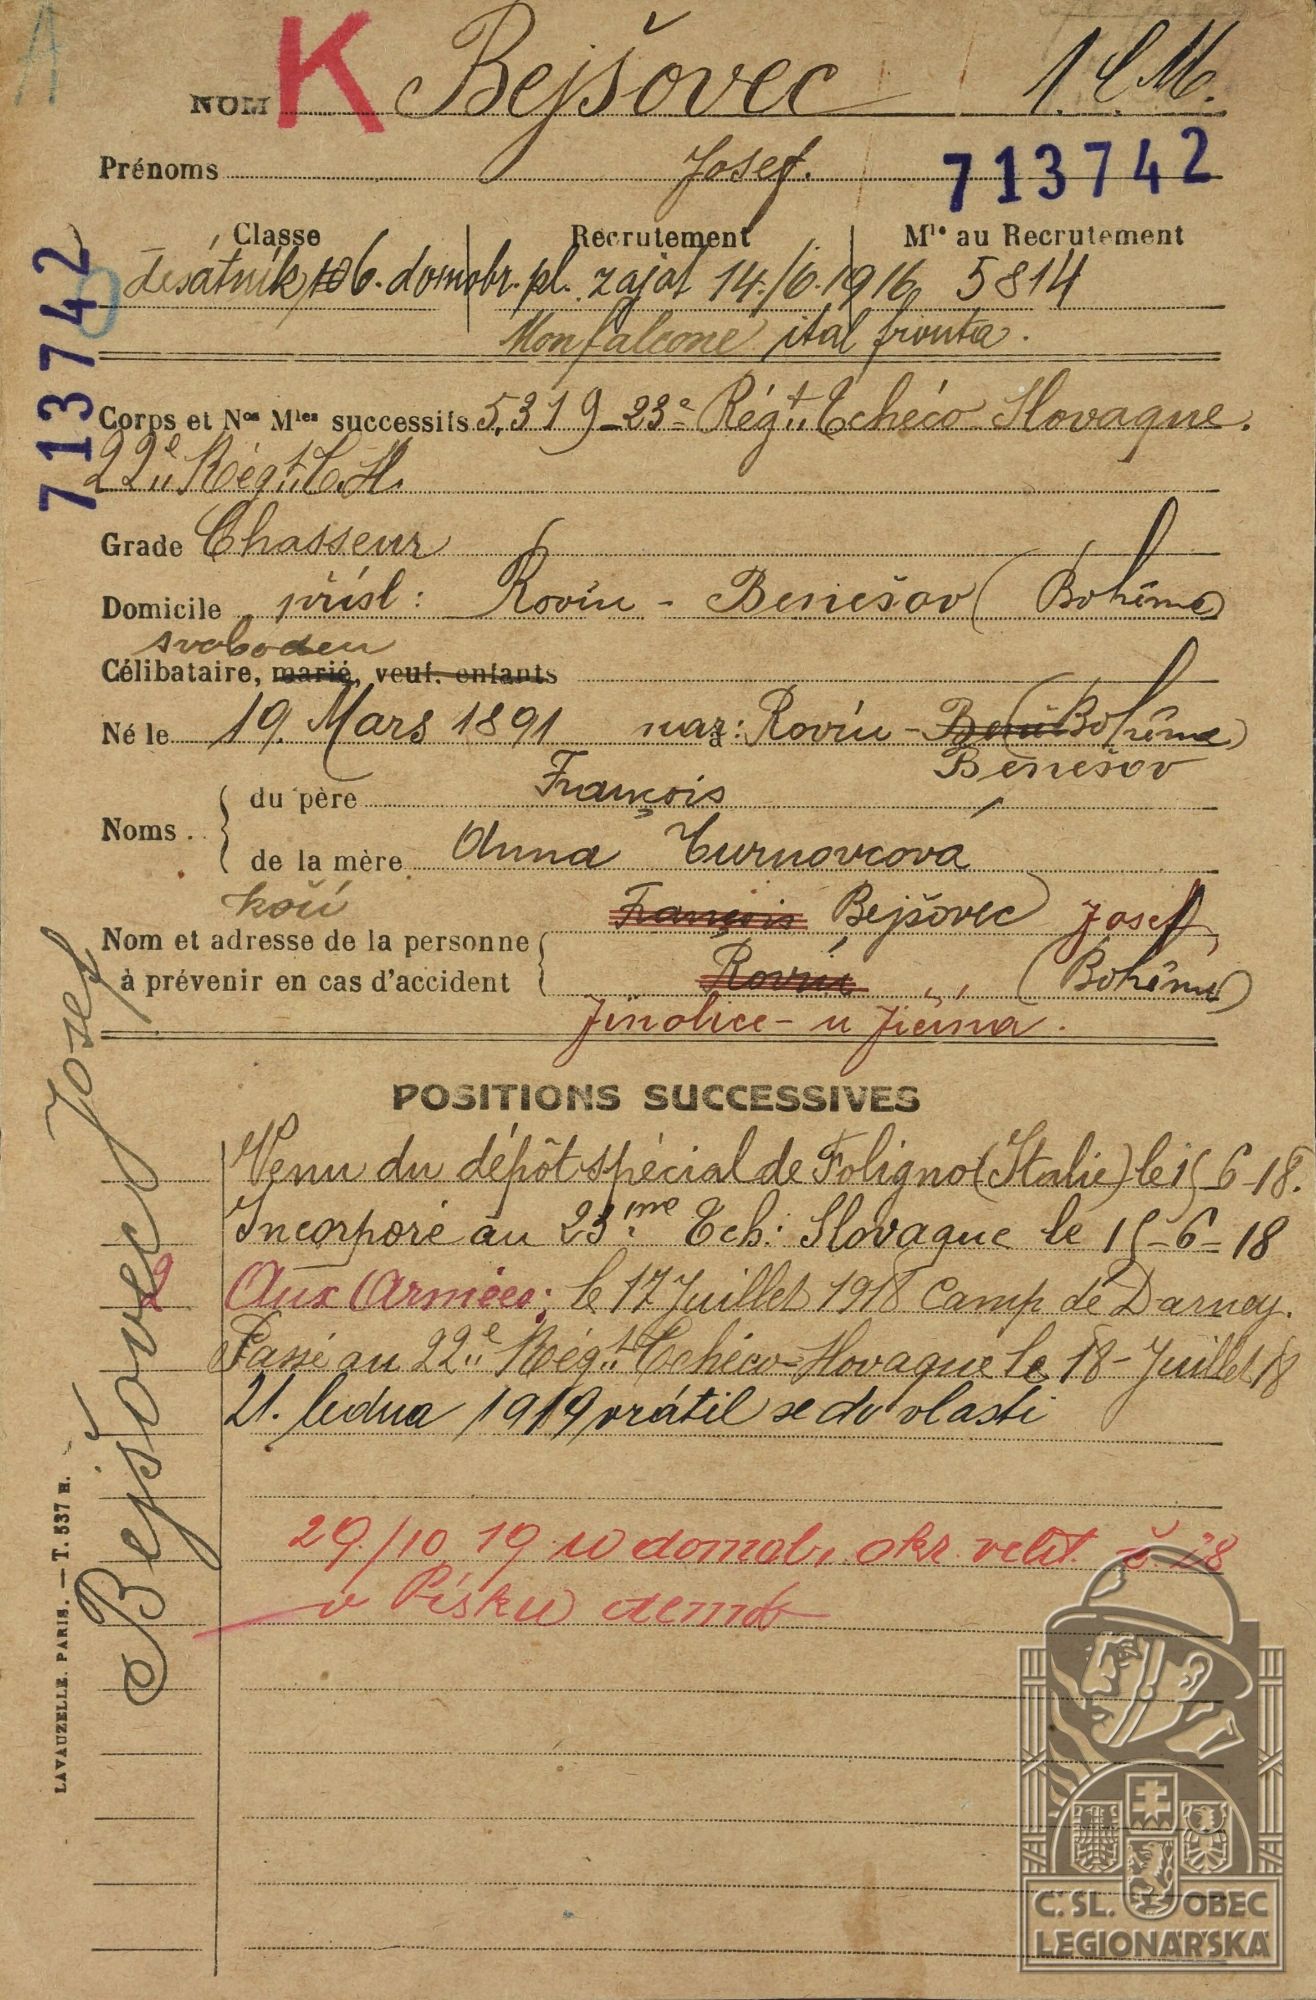 NOM K Bejšovec 1. l. M.
Prénoms Josef.
713742
Classe Recrutement Mle au Recrutement
desátník 6. domobr. pl. zajat 14./6. 1916 5814
Monfalcone ital fronta.
Corps et Nos Mles successifs 5,319-23e Régt. Tchéco Slovaque.
22e Régt. T.Sl.
Grade Chasseur
Domicile přísl: Rovín - Benešov (Bohême)
svoboden
Célibataire, marié, veuf. enfants
Né le 19. Mars 1891 nar: Rovín - (Bohême)
Benešov
Noms. du père François
de la mère Anna Turnovcova
kočí
François Bejšovec Josef,
Nom et adresse de la personne
à prévenir en cas d'accident Rovín (Bohême)
Jinolice - u Jičína.
POSITIONS SUCCESSIVES
Venu du dépôt spécial de Foligno (Italie) le 15-6-18.
Incorporé au 23me Tch: Slovaque le 15-6-18
2 Aux Armées; le 17 Juillet 1918 Camp de Darney.
Passé au 22e Régt. Tchéco-Slovaque le 18-Juillet 18
21. ledna 1919 vrátil se do vlasti
29./10 19 u domob. okr. velit. č 28
v Písku demob
713742
Bejšovec Josef
LAVAUZELLE. PARIS. — T. 537 H.
Č. SL. OBEC
LEGIONÁŘSKÁ